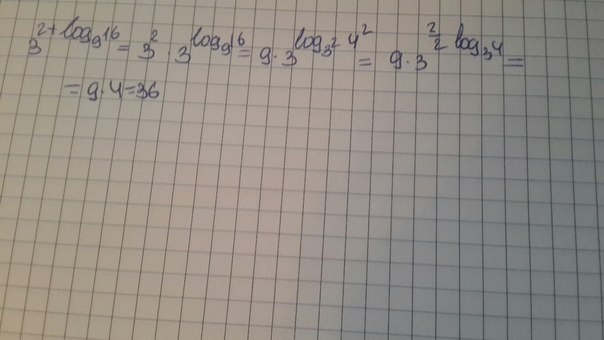 3^{2+log_9 16} = 3^2 · 3^{log_9 16} = 9 · 3^{log_{3^2} 4^2} = 9 · 3^{\frac{2}{2} log_3 4} =
= 9 · 4 = 36